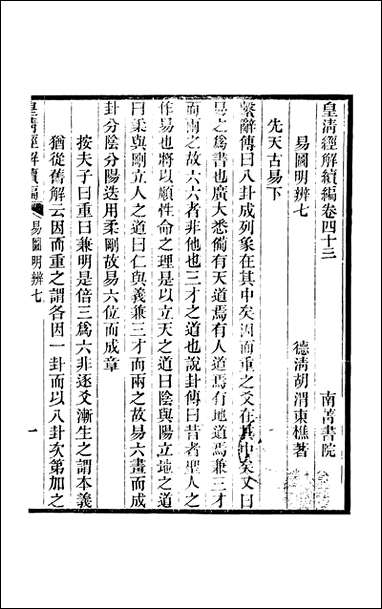 皇清經解續編卷四十三 南菁書院
易圖明辨七 德淸胡渭東樵著
先天古易下
繫辭傳曰八卦成列象在其中矣因而重之爻在其中矣又曰
易之爲書也廣大悉備有天道焉有人道焉有地道焉兼三才
而兩之故六六者非他也三才之道也說卦傳曰昔者聖人之
作易也將以順性命之理是以立天之道曰陰與陽立地之道
曰柔與剛立人之道曰仁與義兼三才而兩之故易六畫而成
卦分陰分陽迭用柔剛故易六位而成章
按夫子曰重曰兼明是倍三爲六非逐爻漸生之謂本義
猶從舊解云因而重之謂各因一卦而以八卦次第加之
皇清經解續編 易圖明辨七 一